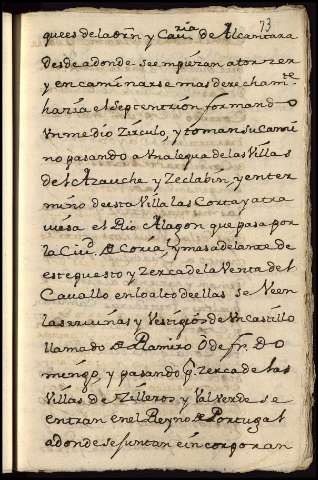 73
quees dela orn y Cauria de Alcantara
desde adonde se empiezan atorzer
y encaminarse mas derechamte
hazia el septentrion formando
Vn medio Zirculo, y toman su Cami
no pasando a Vna legua de las Villas
del Azauche y Zeclabin, y enter
mino de esta Villa las Corta y atra
uiesa el Rio Alagon que pasa por
la Ciud. de Coria, y mas adelante de
este puesto y Zerca de la Venta del
Cauallo en lo alto de ellas se Veen
las rruinas y Vestigios de Vn Castillo
llamado de Ramiro O de fr. Do
mingo, y pasando por Zerca de las
Villas de Zilleros y Valverde se
entran en el Reyno de Portugal
adonde se juntan e incorporan